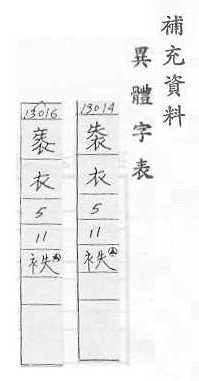 補充資料
異體字表
13014
衣
5
11
袟
13016
袠
衣
5
11
袟